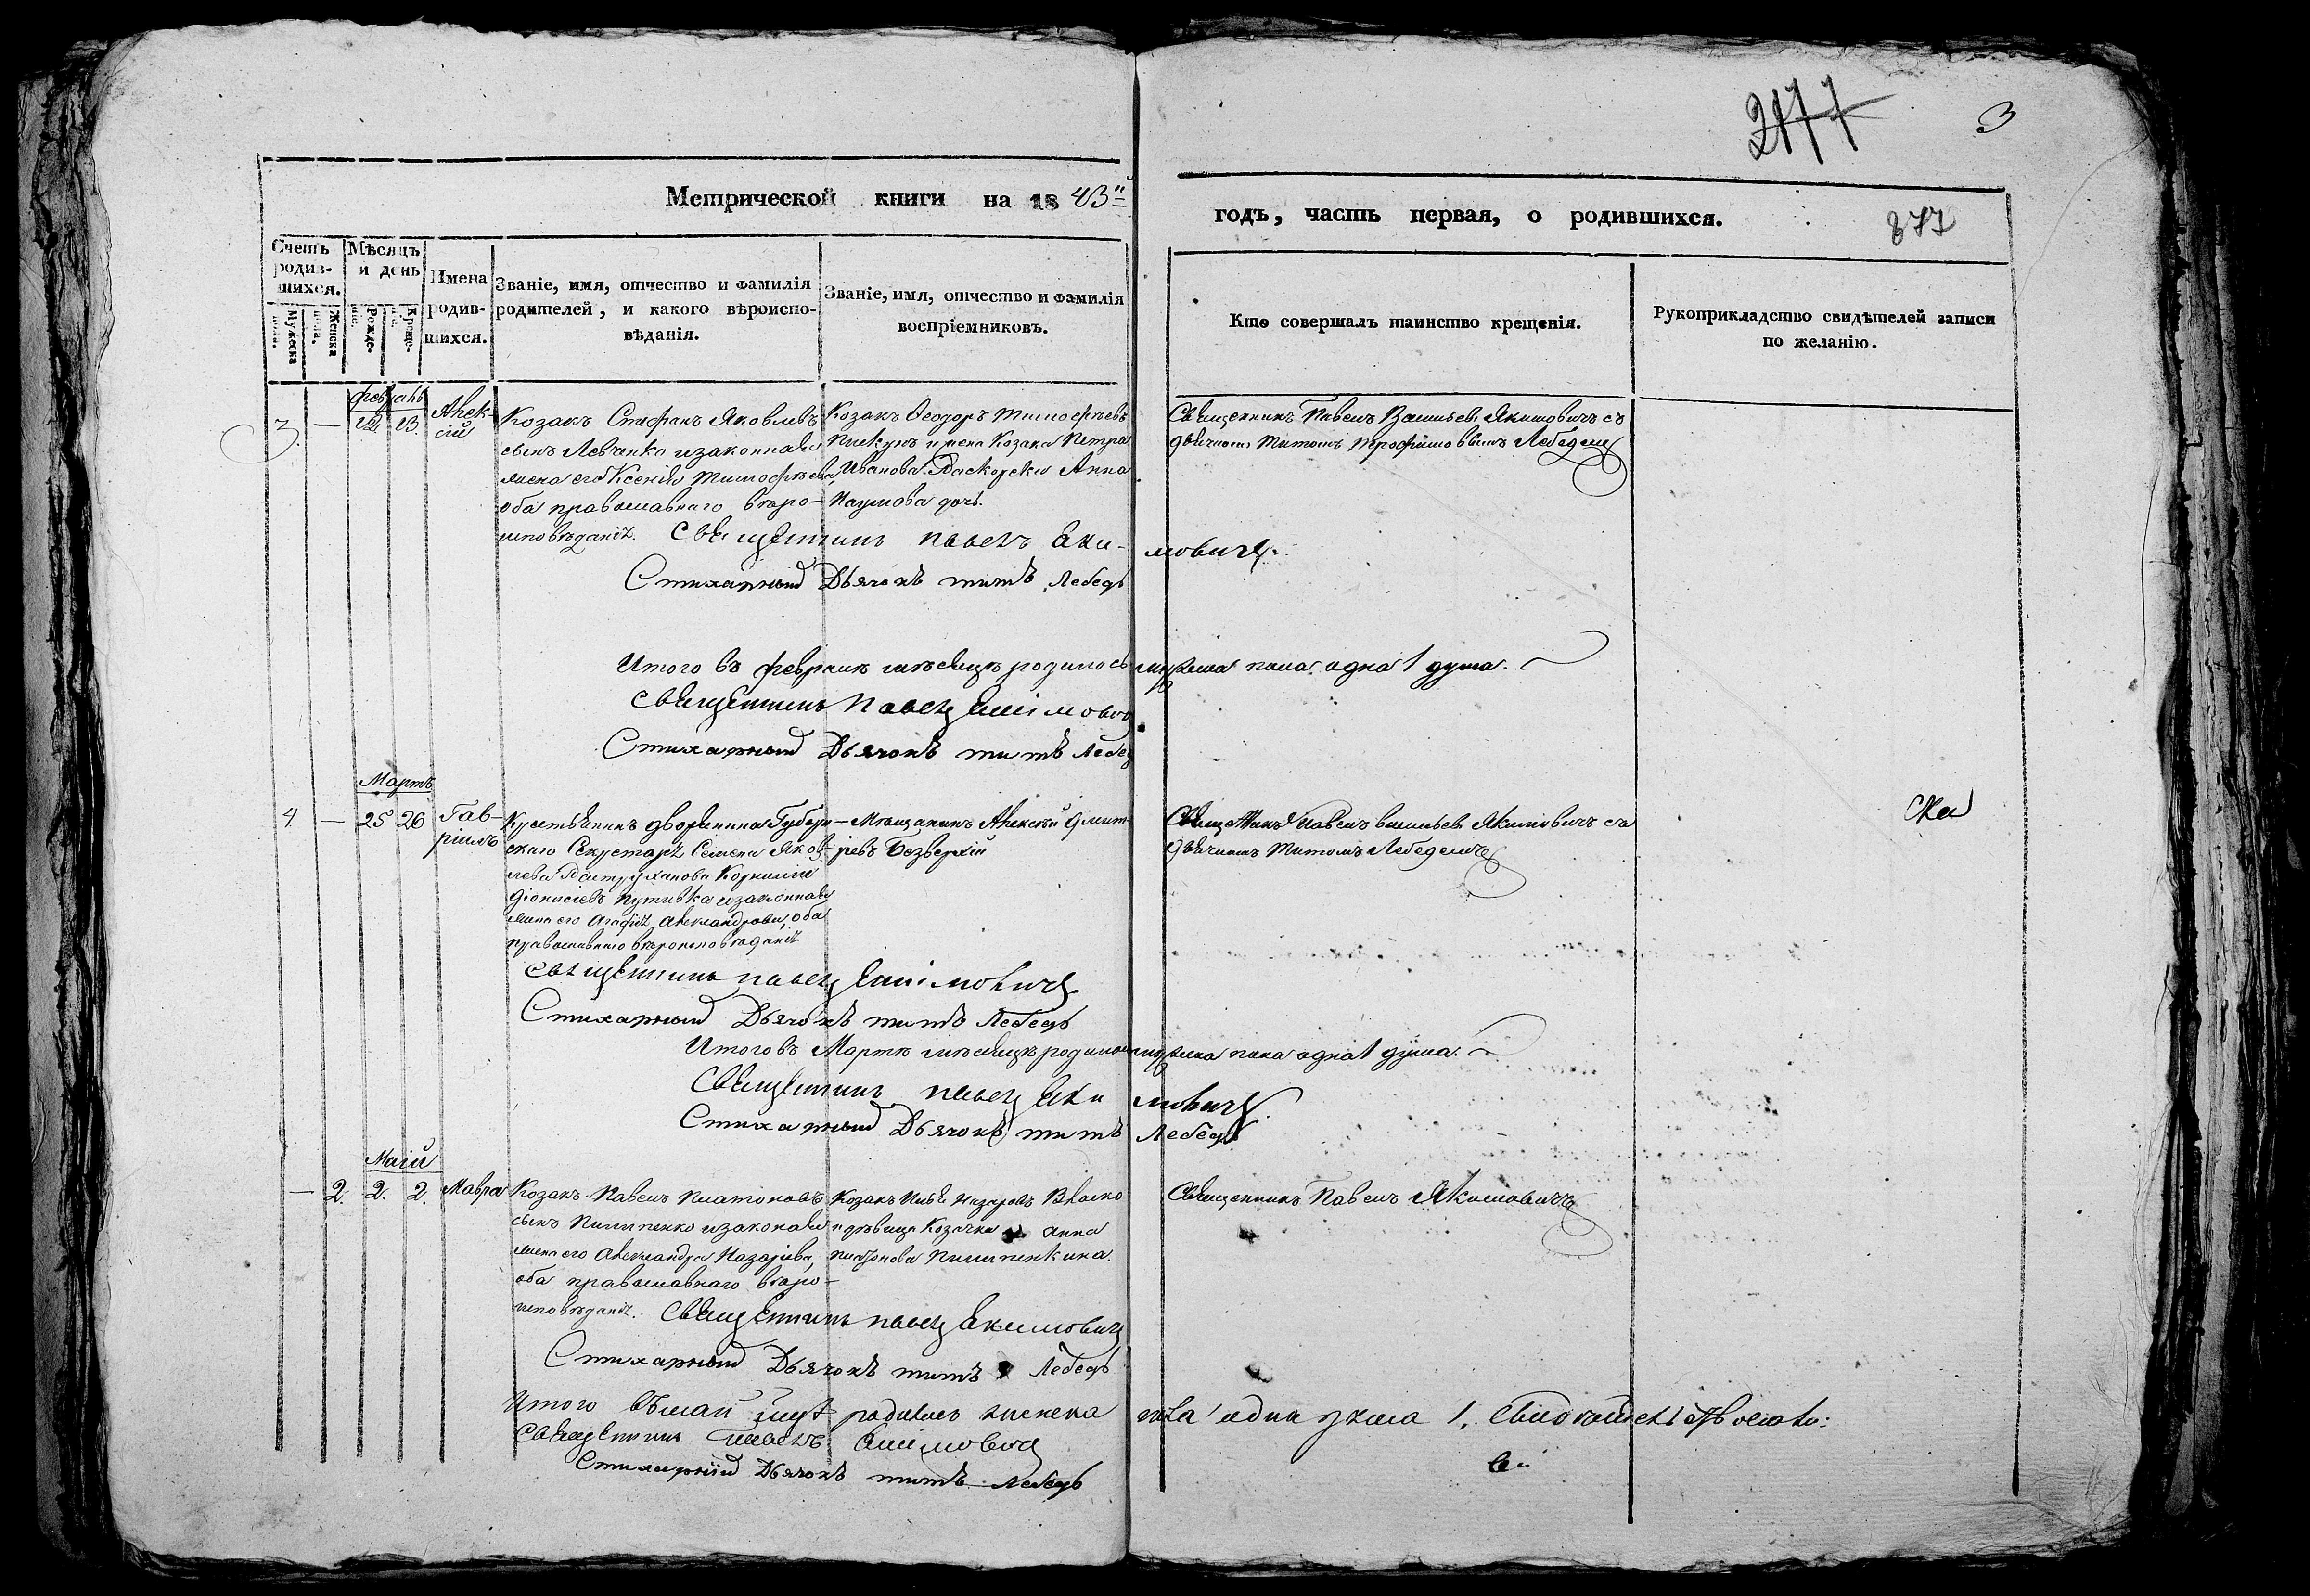 2177
3
Метрической книги на 1843й
годъ, часть первая, о родившихся.
877
Счетъ родившихся.
Мужеска пола.
Женска пола.
Мѣсяцъ и день
Рожденія.
Крещенія.
Имена родившихся.
Званіе, имя, отчество и фамилія
родителей, и какого вѣроиспо-
вѣданія.
Званіе, имя, отчество и фамилія
воспріемниковъ.
Кто совершалъ таинство крещенія.
Рукоприкладство свидѣтелей записи
по желанію.
февраль
3. — 12. 13. Алек-
сій
Козакъ Стефанъ Яковлевъ
сынъ Левченко и законная
жена его Ксенія Тимофѣева
оба православнаго вѣро-
исповѣданія.
Козакъ Феодоръ Тимофѣевъ
Пикунъ и жена Козака Петра
Иванова Анна
Наумова дочь.
Священникъ Павелъ Васильевъ Якимовичъ съ
дьячкомъ Титомъ Трофимовымъ Лебедемъ
Священникъ Павелъ Якимовичъ.
Стихарный Дьячокъ титъ Лебедь
Итого въ февралѣ мѣсяцѣ родилось мужеска пола одна 1 душа.
Священникъ Павелъ Якимович
Стихарный Дьячокъ титъ Лебед
Мартъ
4. — 25 26 Гав-
ріилъ
Крестьянинъ дворянина Губерн-
скаго Секретаря Семена Яков-
лева Корнилій
Діонисіевъ Путивка и законная
жена его Агафія Александрова, оба
православнаго вѣроисповѣданія
Мѣщанинъ Алексѣй Дмит-
ріевъ Безверхій
Священникъ Павелъ Васильевъ Якимовичъ съ
дьячкомъ Титомъ Лебедемъ
Священникъ Павелъ Якимовичъ
Стихарный Дьячокъ титъ Лебедь
Итого въ Мартѣ мѣсяцѣ родилось мужеска пола одна 1 душа.
Священникъ Павелъ Якимовичъ.
Стихарный Дьячокъ титъ Лебедь
Маій
— 2. 2. 2. Мавра
Козакъ Павелъ Платоновъ
сынъ Пилипенко и законная
жена его Александра Назаріева,
оба православнаго вѣро-
исповѣданія.
Козакъ Назаровъ Власко
и дѣвица Козачка Анна
Платонова Пилипенкина.
Священникъ Павелъ Якимовичъ
Священникъ Павелъ Якимовичъ
Стихарный Дьячокъ титъ Лебедь
Итого въ маіи родилось женска пола одна душа 1.
Священникъ Павелъ Якимовичъ
Стихарный Дьячокъ титъ Лебедь